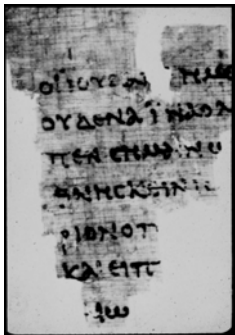 ΟΙ ΙΟΥΔΑΙ ΗΜΕ
ΟΥΔΕΝΑ ΪΝΑ Ο Λ
ΠΕΝ ϹΗΜΑΙΝΩ
ΘΝΗϹΚΕΙΝ Ι
ΡΙΟΝ Ο Π
ΚΑΙ ΕΙΠ
ΙΩ